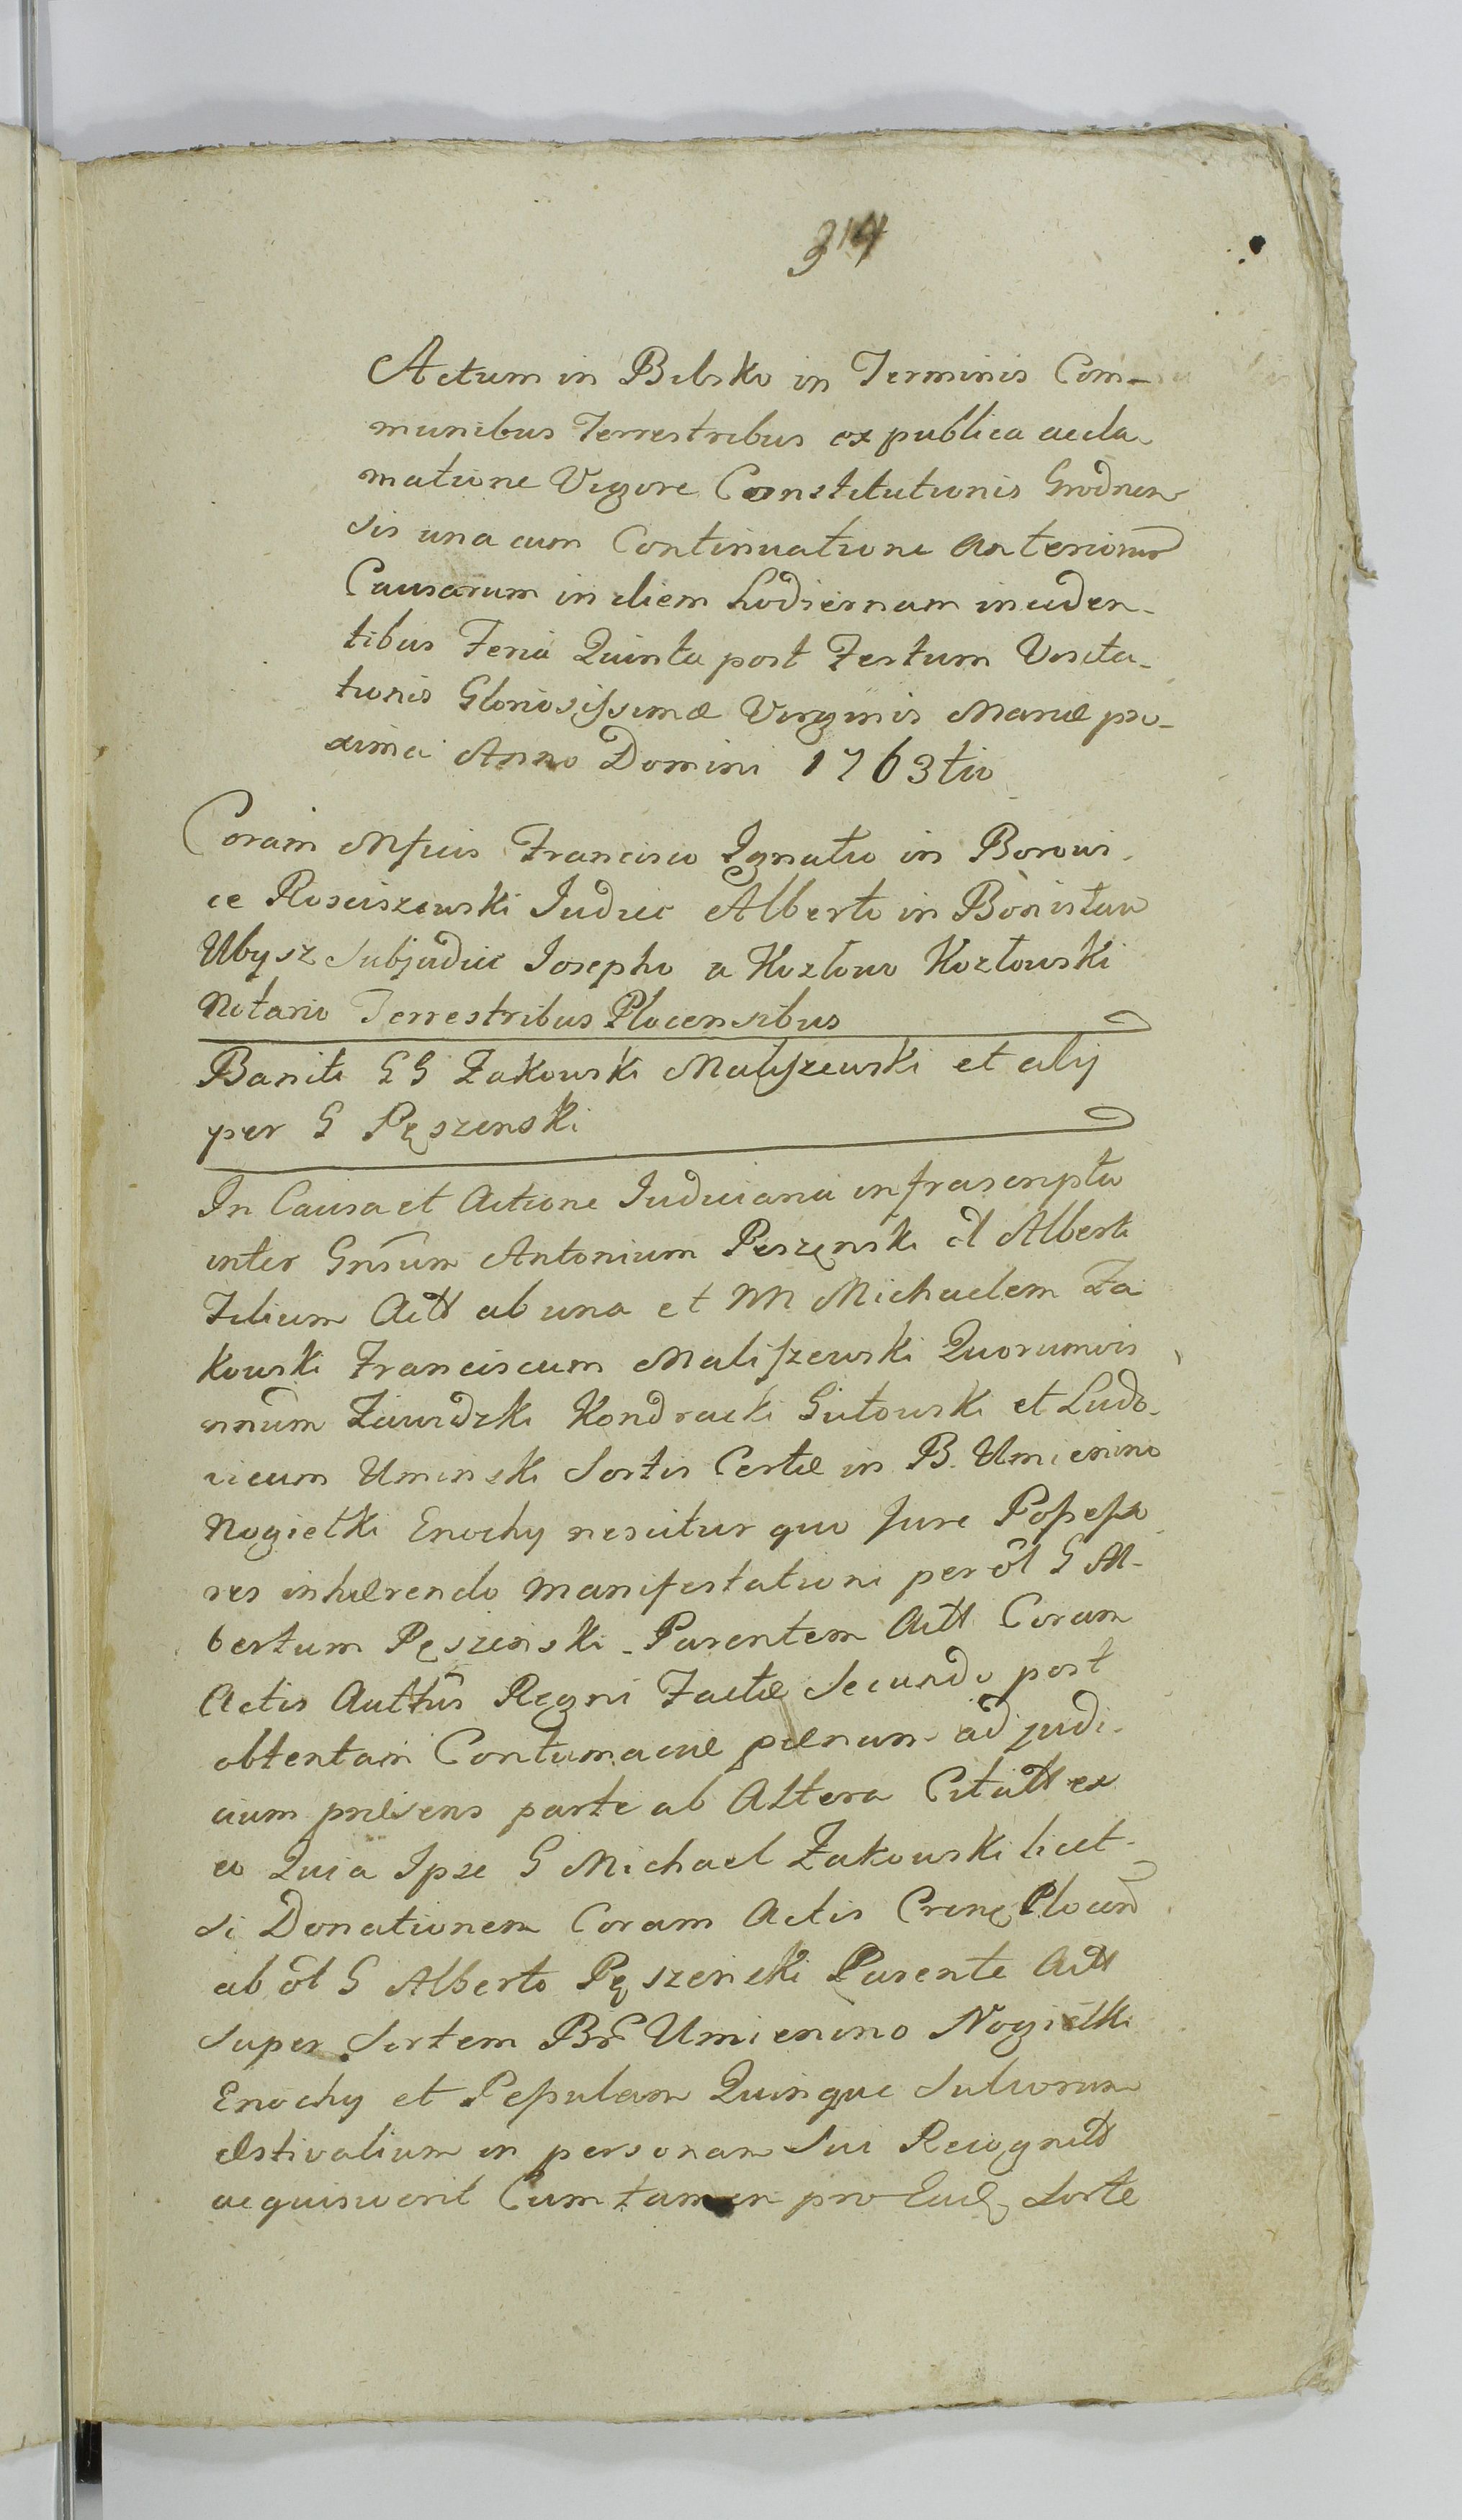 314
Actum in Bilsko in Terminis Com-
munibus Terrestribus ex publica accla-
matione Vigore Constitutionis Grodnen-
sis una cum Continuatione Anteriorum
Causarum in diem hodiernam inciden-
tibus Feria Quinta post Festum Visita-
tionis Gloriosissimæ Virginis Mariæ pro-
xima Anno Domini 1763tio
Coram Mfficis Francisco Ignatio in Borowi-
ce Rosciszewski Judice Alberto in Bònislaw
Ubysz Subjudice Iosepho a Kozłowo Kozłowski
Notario Terrestribus Plocensibus
Baniti GG Zakowski Maliszewski et alij
per G Pęszenski
In Causa et Actione Iudiciaria infrascripta
inter Gnsum Antonium Peszęnski ol Alberti
Filium Actt ab una et NN Michaelem Za
kowski Franciscum Maliszewski Quorumvis
nnum Zawidzki Kondracki Gutowski et Ludo-
vicum Uminski Sortis Certæ in B. Umienino
Nogietki Enochy nescitur quo Jure Possesso
res inhærendo Manifestationi per ol G Al-
bertum Pęszenski Parentem Actt Coram
Actis Autthus Regni Factæ Secundo post
obtentam Contumaciæ pænam ad judi-
cium præsens parte ab Altera Citatt ex
eo Quia Ipse G Michael Zakowski licet
si Donationem Coram Actis Crens Plocen
ab ol G Alberto Pęszenski Parente Actt
Super Sortem Br Umienino Nogietki
Enochy et Pessulam Quinque Sulcorum
Æstivalium in personam Sui Recognitt
acquisiverit Cum tamen pro Eadq Sorte